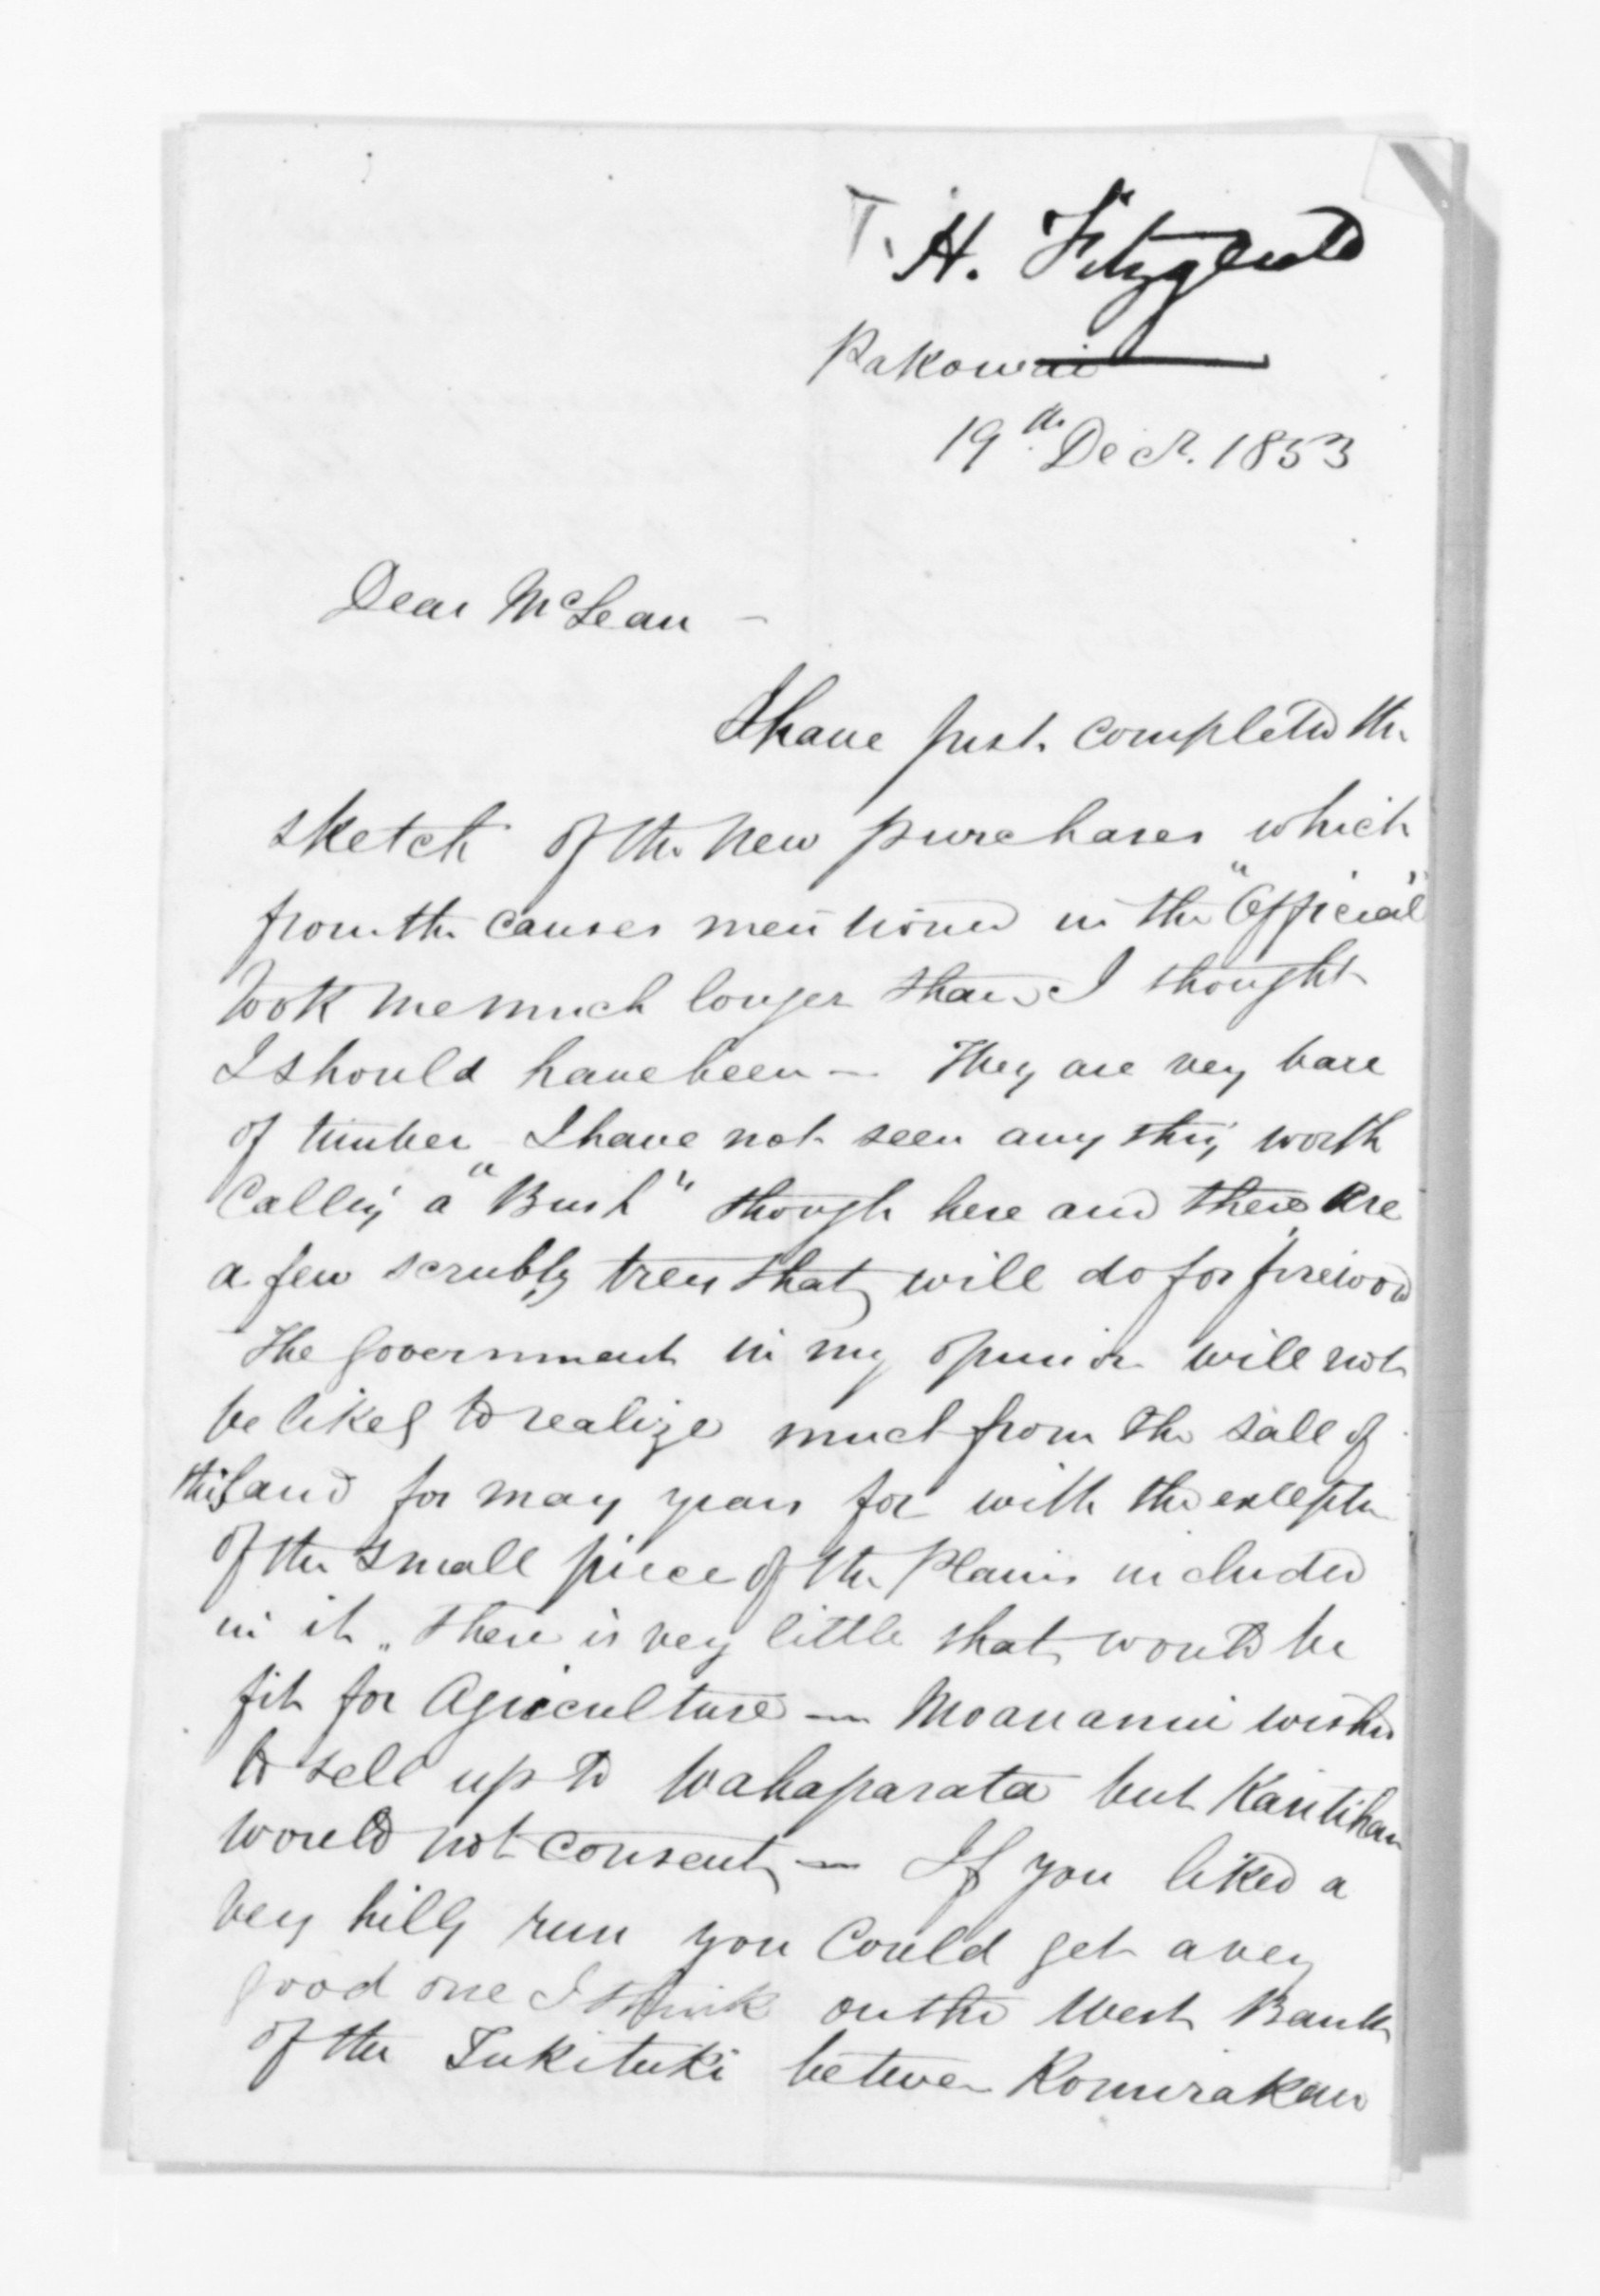 T. H. Fitzgerald
Pakowai
19th Decr. 1853
Dear McLean -
I have just completed the
sketch of the new purchases which
from the causes mentioned in the "Official"
took me much longer than I thought
I should have been — They are very bare
of timber I have not seen any thing worth
calling a "Bush" though here and there are
a few scrubby trees that will do for firewood
The Government in my opinion will not
be likely to realize much from the sale of
this land for many years for with the exception
of the small piece of the Plains included
in it, there is very little that would be
fit for Agriculture — Moananui wished
to sell up to Wahaparata but Karitihana
would not consent — If you liked a
very hilly run you could get a very
good one I think on the West Bank
of the Tukituki between